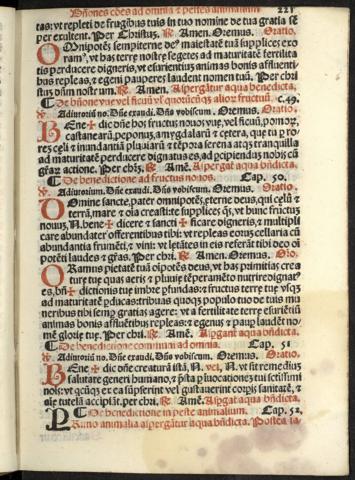 Bñones cões ad omnia & pestes animalium 221
tas: vt repleti de frugibus tuis in tuo nomine de tua gratia sẽ
per exultent. Per Christus. ℟. Amen. Oremus. Oratio.
OMnipotẽs sempiterne de⁹ maiestatẽ tuã supplices exo
ram⁹, vt has terrę nostrę segetes ad maturitatẽ fertilita
tis perducere digneris, et esurientius animas bonis affluenti-
bus repleas, & egeni & pauperes laudent nomen tuũ. Per chri
stus dñm nostrum. ℟. Amen. Aspergãtur aqua benedicta.
De bñõne vue vel ficuũ vĺ quorũcũqꝫ alior̃ fructuũ c.49.
℣. Adiutoriũ no. Dñe exaudi. Dñs vobiscum. Oremus. Oratio.
BEne ✠ dic dñe hos fructus nouos vuę, vel ficuũ, pomor̃,
castanearũ, peponus, amygdalarũ & cętera, que tu p ro
res celi & inundantiã pluuiarũ & tẽpora serena atqꝫ tranquilla
ad maturitatẽ perducere dignatus es, ad pcipiendus nobis cũ
gr̃az actione. Per chr̃s. ℟. Amẽ. Aspergat aqua bñdicta.
De benedictione ad fructus nouos. Cap. 50.
℣. Adiutoriũ no. Dñe exaudi. Dñs vobiscum. Oremus. Oratio
DOmine sancte, pater omnipotẽs, eterne deus, qui celũ &
terrã, mare & oia creasti: te supplices q̃s, vt hunc fructus
nouus, N. bene ✠ dicere & sancti ✠ ficare digneris, & multipli
care abundater offerentibus tibi: vt repleas eorus cellaria cũ
abundantia frumẽti, & vini: vt lętãtes in eis referãt tibi deo oĩ
potẽti laudes & gr̃as. Per chr̃i. ℟. Amẽ. Oremus. Oro.
ORamus pietatẽ tuã oipotẽs deus, vt has primitias crea
turę tuę quas aeris & pluuię tẽperamẽto nutrire dignat⁹
es, bñ✠ dictionis tuę imbre pfundas: & fructus terrę tuę vsqꝫ
ad maturitatẽ pducas: tribuas quoqꝫ populo tuo de tuis mu
neribus tibi semp gratias agere: vt a fertilitate terrę esuriẽtiũ
animas bonis affluẽtibus repleas: & egenus & paup laudẽt no-
mẽ glorię tuę. Per chri. ℟. Amẽ. Aspgant aqua bñdicta.
De benedictione communi ad omnia. Cap. 51
℣. Adiutoriũ no. Dñe exaudi. Dñs vobiscum. Oremus. Oratio.
BEne ✠ dic dñe creaturã istã, N. vel, N. vt fit remediũ
salutare generi humano, & pręsta p inuocationez tui sctissimi
nois: vt qcũqꝫ ex ea sũpserint vel gustauerint corpis sanitatẽ, &
aię tutelã accipiãt. per chri. ℟. Amẽ. Aspgat aqua bñdicta.
De benedictione in peste animalium. Cap. 52.
PRimo animalia aspergãtur aqua bñdicta. Postea sa-